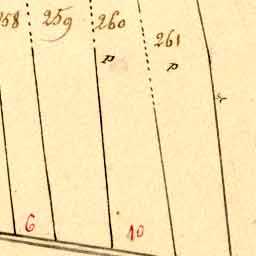 258 259 260
261
p
p
6 10